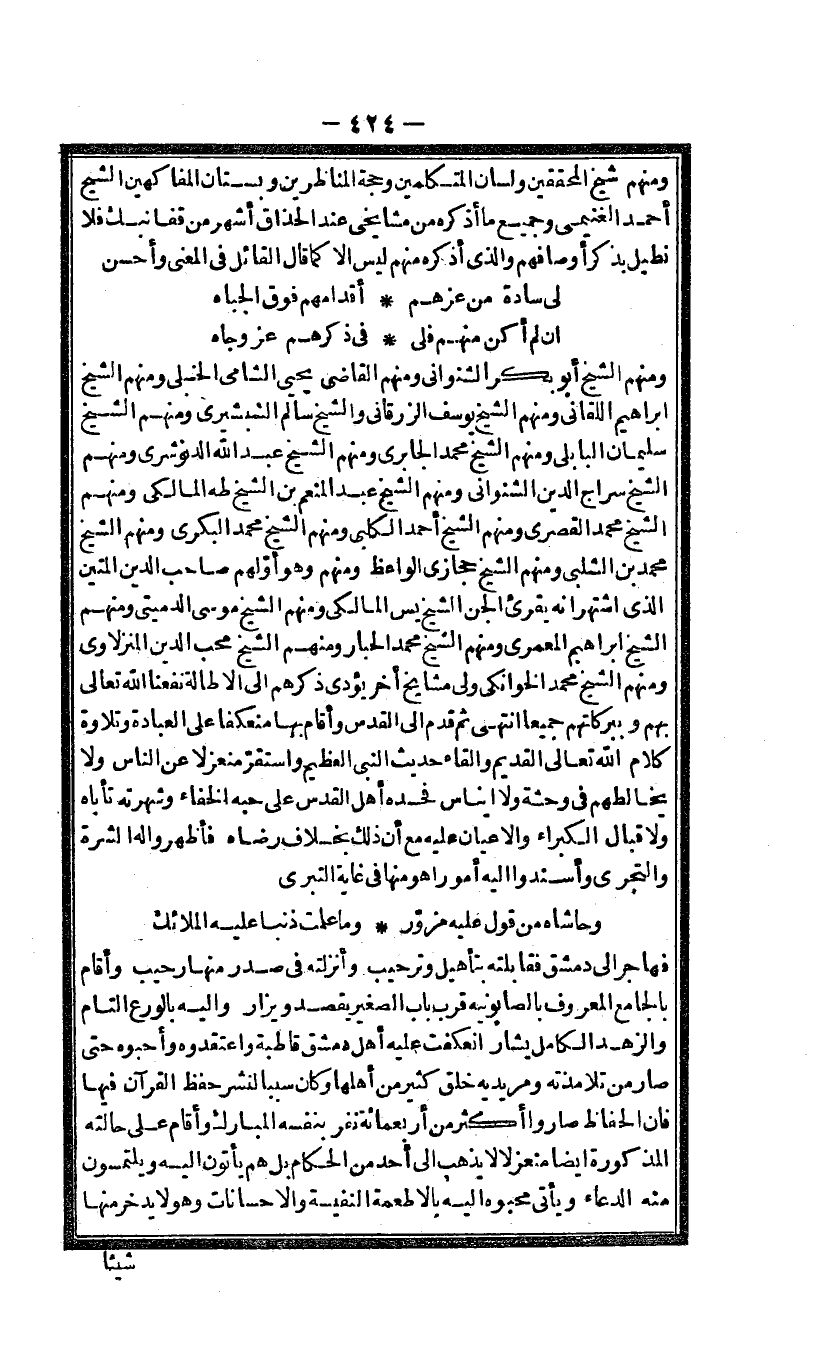 — ٤٢٤ —
ومنهم شيخ المحققين ولسان المتكلمين وحجة المناظرين وبستان المفاكهين الشيخ
أحمد الغنيمى وجميع ما أذكره من مشايخى عند الحذاق أشهر من قفا نبك فلا
نطيل بذكر أوصافهم والذى أذكره منهم ليس الا كما قال القائل فى المعنى وأحسن
لى سادة من عزهم * أقدامهم فوق الجباه
ان لم أكن منهم فلى * فى ذكرهم عز وجاه
ومنهم الشيخ أبو بكر الشنوانى ومنهم القاضى يحيى الشامى الحنبلى ومنهم الشيخ
ابراهيم اللقانى ومنهم الشيخ يوسف الزرقانى والشيخ سالم الشبشيرى ومنهم الشيخ
سليمان البابلى ومنهم الشيخ محمد الجابرى ومنهم الشيخ عبد الله الدنوشرى ومنهم
الشيخ سراج الدين الشنوانى ومنهم الشيخ عبد المنعم بن الشيخ طه المالكى ومنهم
الشيخ محمد القصرى ومنهم الشيخ أحمد الكلبى ومنهم الشيخ محمد البكرى ومنهم الشيخ
محمد بن الشلبى ومنهم الشيخ حجازى الواعظ ومنهم وهو أوّلهم صاحب الدين المتين
الذى اشتهر انه يقرئ الجن الشيخ يس المالكى ومنهم الشيخ موسى الدميتى ومنهم
الشيخ ابراهيم المعمرى ومنهم الشيخ محمد الحبار ومنهم الشيخ محب الدين المنزلاوى
ومنهم الشيخ محمد الخوانكى ولى مشايخ أخر يؤدى ذكرهم الى الاطالة نفعنا الله تعالى
بهم وببركاتهم جميعا انتهى ثم قدم الى القدس وأقام بها منعكفا على العبادة وتلاوة
كلام الله تعالى القديم والقاء حديث النبى العظيم واستقرّ منعزلا عن الناس ولا
يخالطهم فى وحشة ولا ايناس فحسده أهل القدس على حبه الخفاء وشهرته تأباه
ولاقبال الكبراء والاعيان عليه مع أن ذلك بخلاف رضاه فأظهروا له الشرة
والتجرى وأسندوا اليه أمورا هو منها فى غاية التبرى
وحاشاه من قول عليه مزوّر * وما علمت ذنبا عليه الملائك
فهاجر الى دمشق فقابلته بتأهيل وترحيب وأنزلته فى صدر منها رحيب وأقام
بالجامع المعروف بالصابونيه قرب باب الصغير يقصد ويزار واليه بالورع التام
والزهد الكامل يشار انعكفت عليه أهل دمشق قاطبة واعتقدوه وأحبوه حتى
صار من تلامذته ومريديه خلق كثير من أهلها وكان سببا لنشر حفظ القرآن فيها
فان الحفاظ صاروا أكثر من أربعمائة نفر بنفسه المبارك وأقام على حالته
المذكورة ايضا منعزلا لا يذهب الى أحد من الحكام بل هم يأتون اليه ويلتمسون
منه الدعاء ويأتى محبوه اليه بالاطعمة النفيسة والاحسانات وهو لا يدخر منها
شيئا